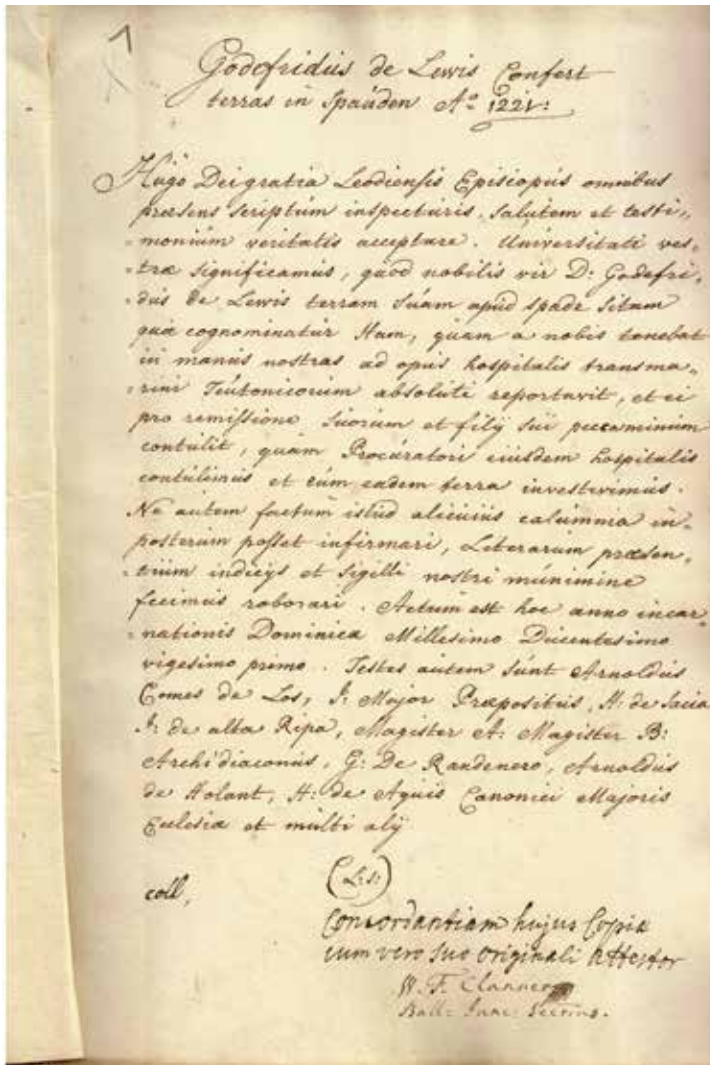 1
Godefridus de Lewis Confert
terras in Spauden Ao 1221:
Hugo Dei gratia Leodiensis Episiopus omnibus
præsens scriptum inspecturis, salutem et testi„
„monium veritatis acceptare. Universitati ves„
„træ significamus, quod nobilis vir D: Godefri„
„dus de Lewis terram suam apud spade sitam
quæ cognominatur Ham, quam a nobis tenebat
in manus nostras ad opus hospitalis transma„
„rini Teutonicorum absoluti reportavit, et ei
pro remissione suorum et filij sui peccaminum
contulit, quam Procuratori eiusdem hospitalis
contulimus et cum eadem terra investivimus.
Ne autem factum istud alicuius calumnia in„
posterum posset infirmari, Literarum præsen„
„tium indicijs et sigilli nostri munimine
fecimus roborari. Actum est hoc anno incar„
„nationis Dominica Millesimo Ducentesimo
vigesimo primo. Testes autem sunt Arnoldus
Comes de Los, I: Major Præpositus, H: de Jacia
I: de alta Ripa, Magister A: Magister B:
Archidiaconus, G: De Randenero, Arnoldus
de Holant, H: de Aquis Canonici Majoris
Ecclesiæ et multi alij
coll,
(L:S:)
Concordantiam hujus Copiæ
cum vero suo originali attestor
W. F.
Ball: Junc: Secrius.